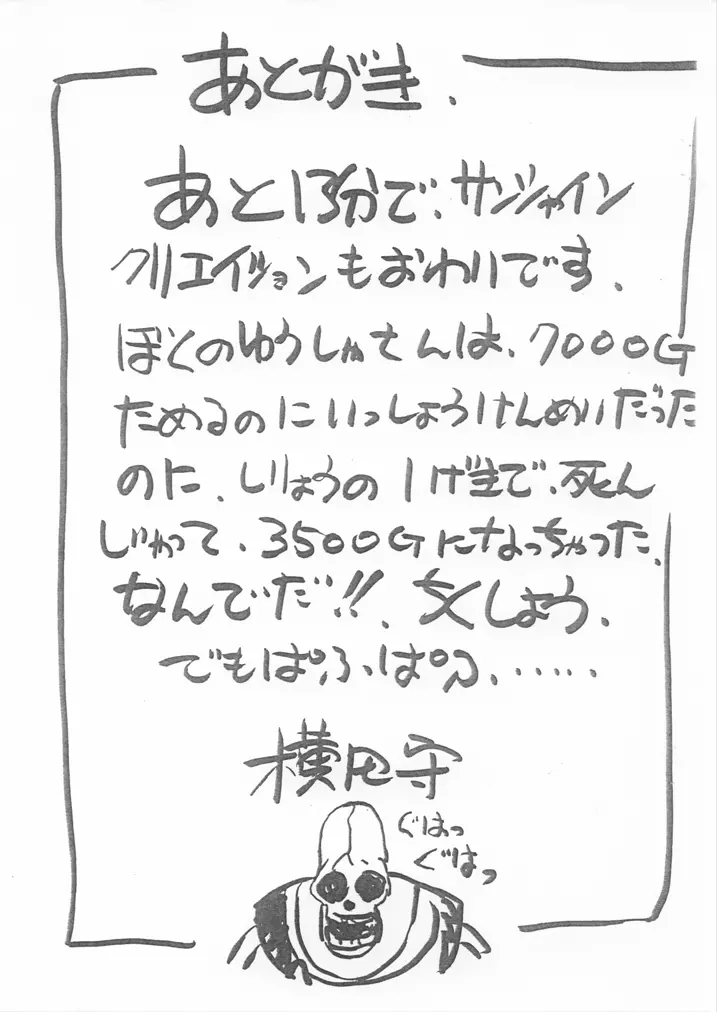 あとがき.
あと13分で、サンシャイン
クリエイションもおわりです.
ぼくのゆうしゃさんは、7000G
ためるのにいっしょうけんめいだった
のに、しりょうの1げきで、死ん
じゃって、3500Gになっちゃった.
なんでだ!!、ちくしょう.
でもぱふっぱふ、……
横田守
ぐはっ
ぐはっ